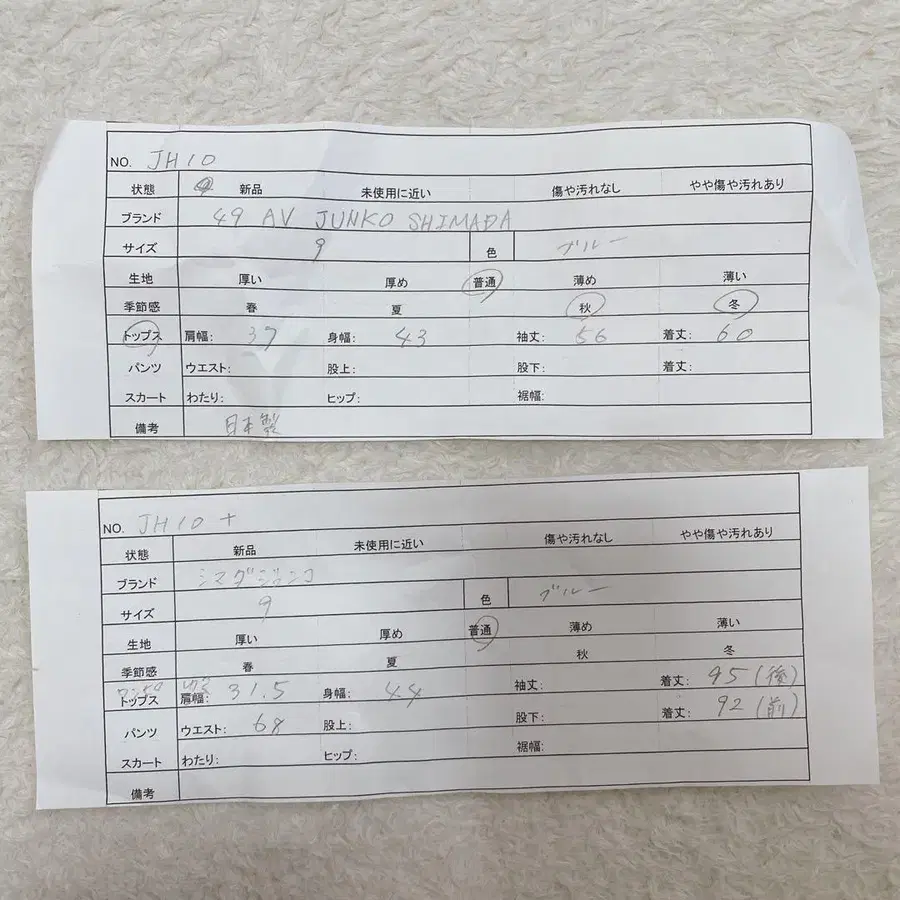 NO. JH10
状態 新品 未使用に近い 傷や汚れなし やや傷や汚れあり
ブランド 49 AV JUNKO SHIMADA
サイズ 9 色 ブルー
生地 厚い 厚め 普通 薄め 薄い
季節感 春 夏 秋 冬
トップス 肩幅: 37 身幅: 43 袖丈: 56 着丈: 60
パンツ ウエスト: 股上: 股下: 着丈:
スカート わたり: ヒップ: 裾幅:
備考 日本製
NO. JH10 +
状態 新品 未使用に近い 傷や汚れなし やや傷や汚れあり
ブランド シマダジュンコ
サイズ 9 色 ブルー
生地 厚い 厚め 普通 薄め 薄い
季節感 春 夏 秋 冬
ワンピ
トップス 肩幅: 31.5 身幅: 44 袖丈: 着丈: 95 (後)
パンツ ウエスト: 68 股上: 股下: 着丈: 92 (前)
スカート わたり: ヒップ: 裾幅:
備考